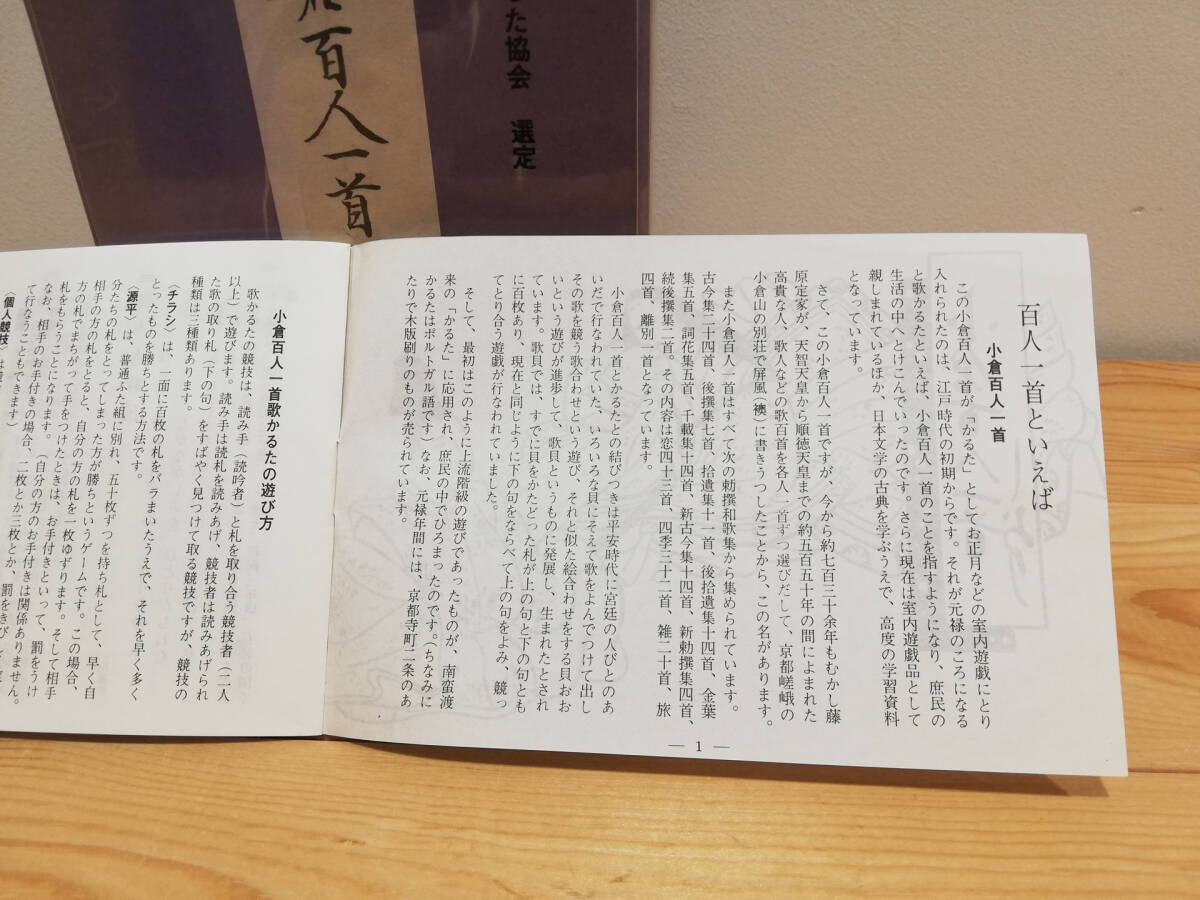 た協会 選定
百人一首
百人一首といえば
小倉百人一首
この小倉百人一首が「かるた」としてお正月などの室内遊戯にとり
入れられたのは、江戸時代の初期からです。それが元禄のころになる
と歌かるたといえば、小倉百人一首のことを指すようになり、庶民の
生活の中へとけこんでいったのです。さらに現在は室内遊戯品として
親しまれているほか、日本文学の古典を学ぶうえで、高度の学習資料
となっています。
さて、この小倉百人一首ですが、今から約七百三十余年もむかし藤
原定家が、天智天皇から順徳天皇までの約五百五十年の間によまれた
高貴な人、歌人などの歌百首を各人一首ずつ選びだして、京都嵯峨の
小倉山の別荘で屏風(襖)に書きうつしたことから、この名があります。
また小倉百人一首はすべて次の勅撰和歌集から集められています。
古今集二十四首、後撰集七首、拾遺集十一首、後拾遺集十四首、金葉
集五首、詞花集五首、千載集十四首、新古今集十四首、新勅撰集四首、
続後撰集二首。その内容は恋四十三首、四季三十二首、雑二十首、旅
四首、離別一首となっています。
小倉百人一首とかるたとの結びつきは平安時代に宮廷の人びとのあ
いだで行なわれていた、いろいろな貝にそえて歌をよんでつけて出し
その歌を競う歌合わせという遊び、それと似た絵合わせをする貝おお
いという遊びが進歩して、歌貝というものに発展し、生まれたとされ
ています。歌貝では、すでに貝をかたどった札が上の句と下の句とも
に百枚あり、現在と同じように下の句をならべて上の句をよみ、競っ
てとり合う遊戯が行なわれていました。
そして、最初はこのように上流階級の遊びであったものが、南蛮渡
来の「かるた」に応用され、庶民の中でひろまったのです。(ちなみに
かるたはポルトガル語です)なお、元禄年間には、京都寺町二条のあ
たりで木版刷りのものが売られています。
— 1 —
小倉百人一首歌かるたの遊び方
歌かるたの競技は、読み手(読吟者)と札を取り合う競技者(二人
以上)で遊びます。読み手は読札を読みあげ、競技者は読みあげられ
た歌の取り札(下の句)をすばやく見つけて取る競技ですが、競技の
種類は三種類あります。
〈チラシ〉は、一面に百枚の札をバラまいたうえで、それを早く多く
とったものを勝ちとする方法です。
〈源平〉は、普通ふた組に別れ、五十枚ずつを持ち札として、早く自
分たちの札をとってしまった方が勝ちというゲームです。この場合、
相手の方の札をとると、自分の方の札を一枚ゆずります。そして相手
方の札でまちがって手をつけたときは、お手付きといって、罰をうけ
札をもらうことになります。(自分の方のお手付きは関係ありません。
なお、相手のお手付きの場合、二枚とか三枚とか、罰をきび
て行なうこともできます)
〈個人競技〉は